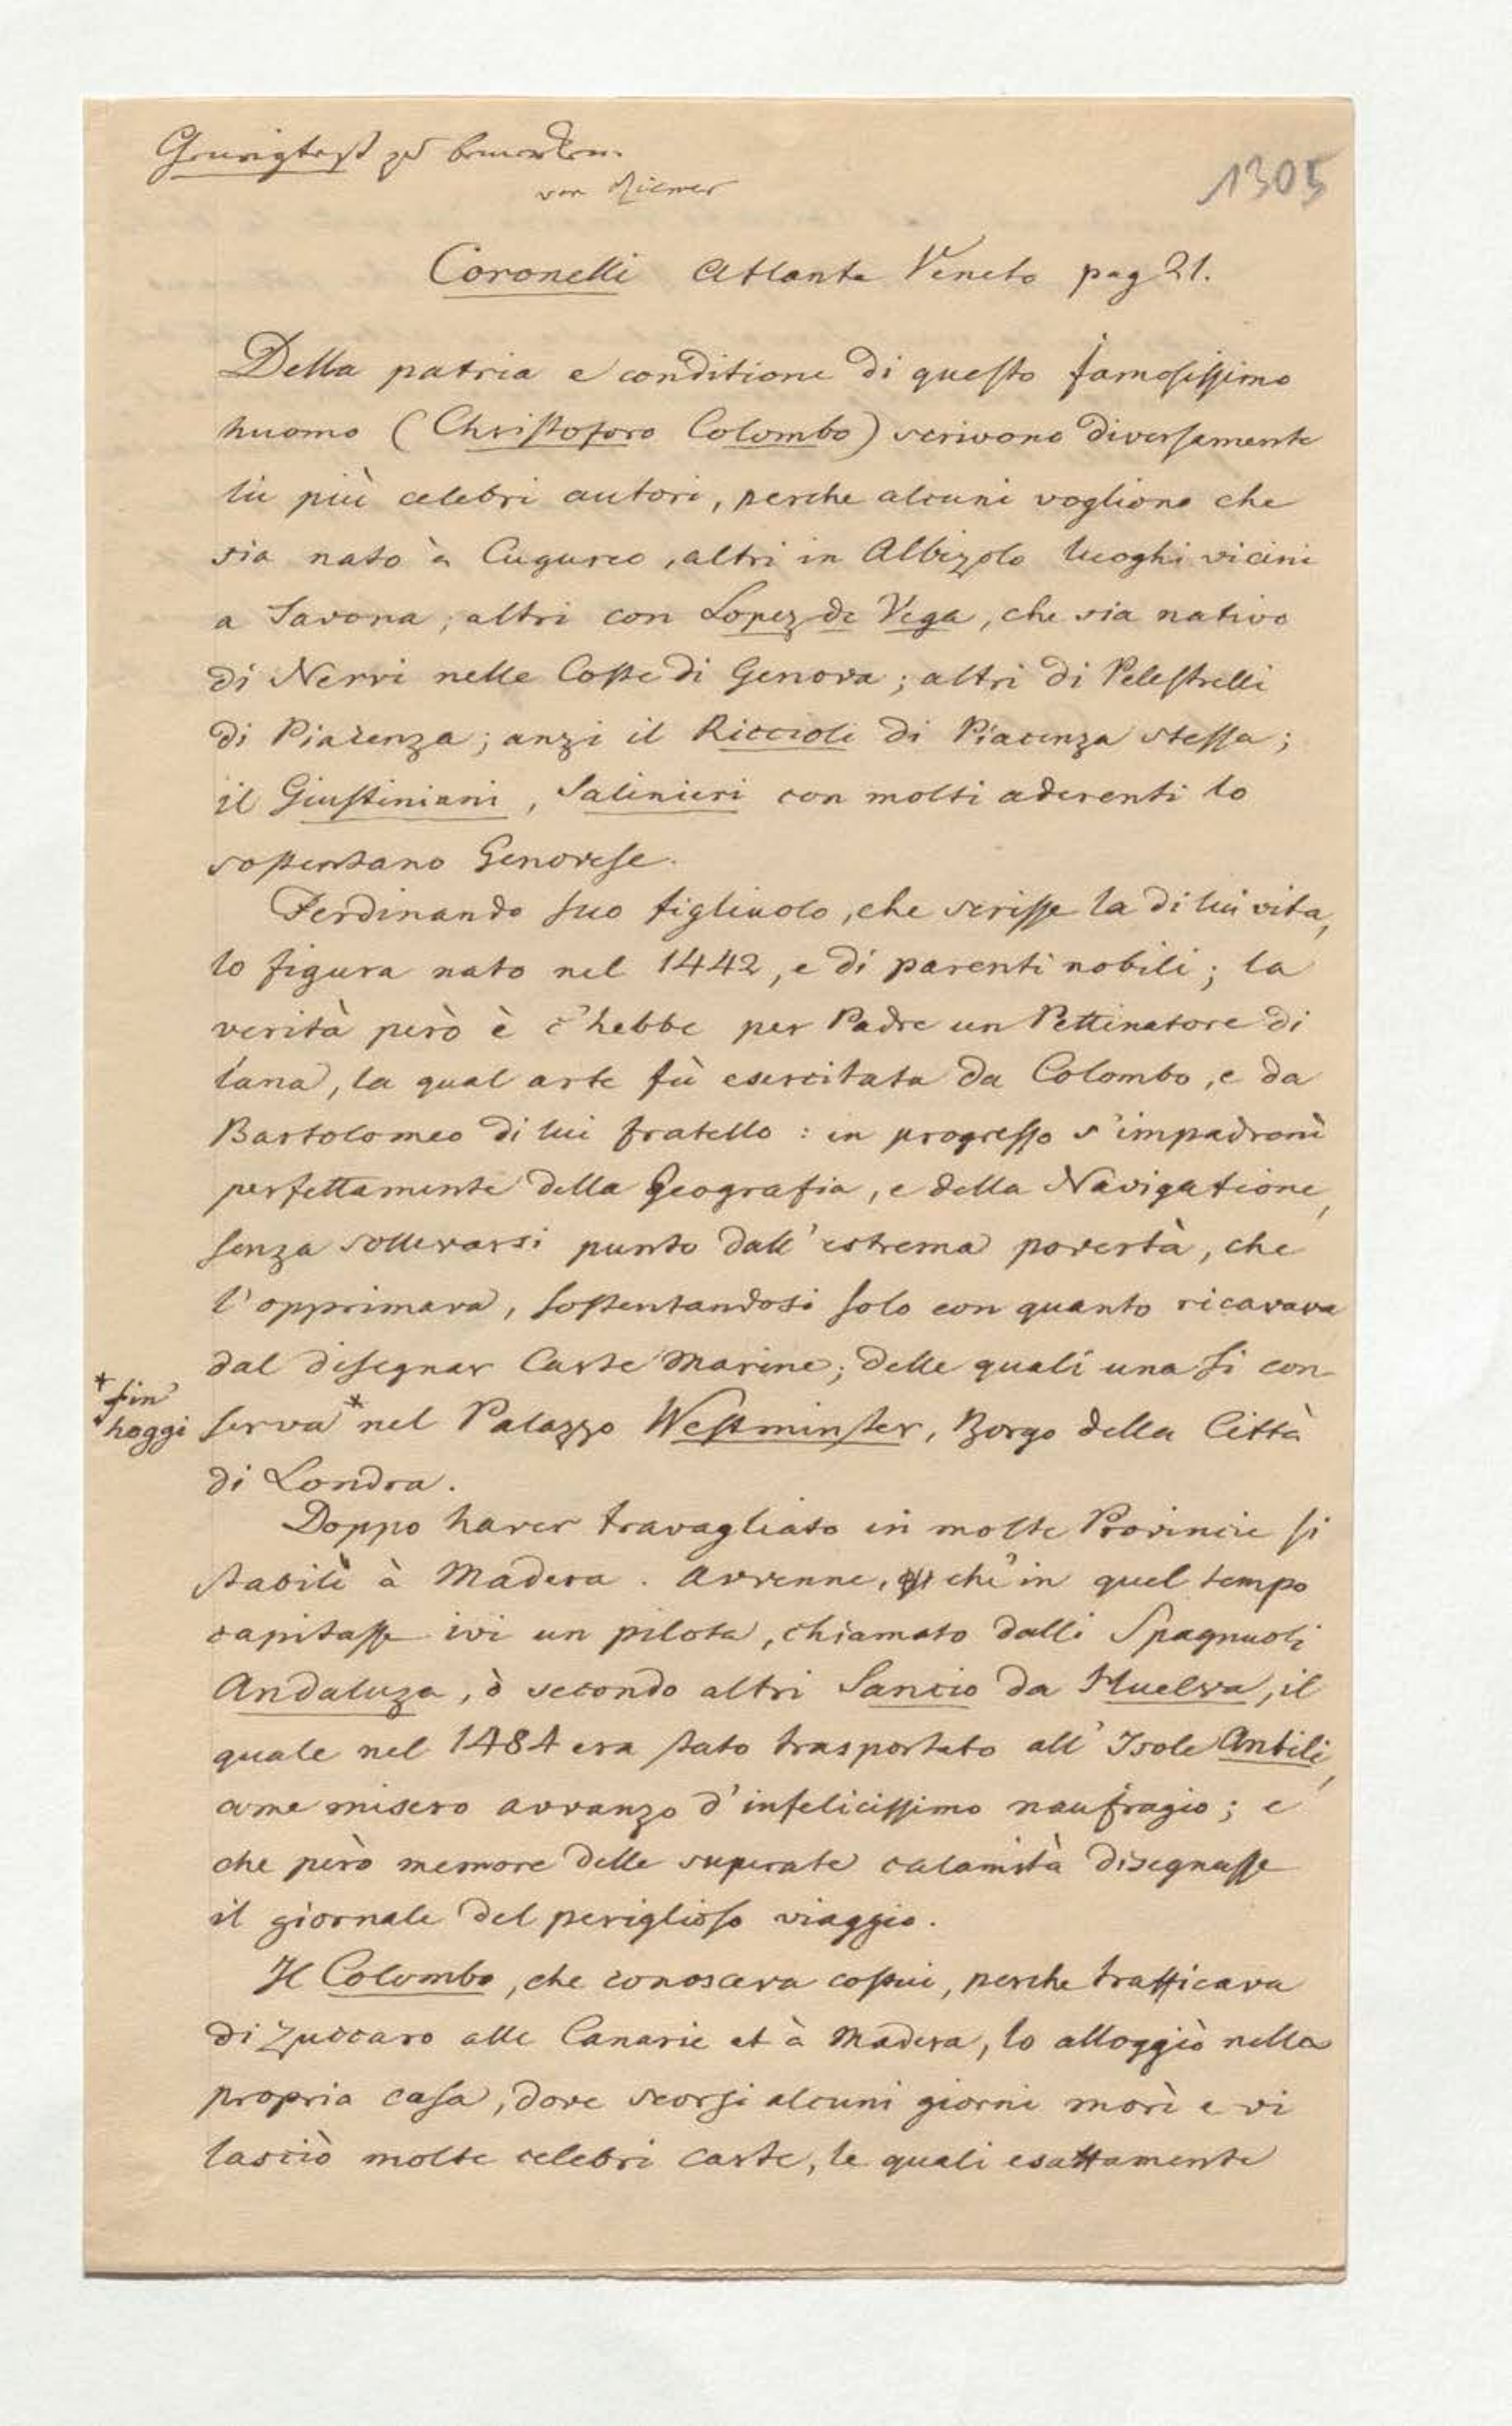 Geneigtest zu bemerken.
von Riemer
1305
Coronelli Atlante Veneto pag 21.
Della patria e conditione di questo famosissimo
huomo (Christoforo Colombo) scrivono diversamente
lii più celebri autori, perche alcuni vogliono che
sia nato à Cugureo, altri in Albizolo luoghi vicini
a Savona; altri con Lopez de Vega, che sia nativo
di Nervi nelle Coste di Genova; altri di Pelestrelli
di Piazenza; anzi il Riccioli di Piacenza stessa;
il Giustiniani, Salinieri con molti aderenti lo
sostentano Genovese.
Ferdinando suo figliuolo, che scrisse la di lui vita,
lo figura nato nel 1442, e di parenti nobili; la
verità però è c'hebbe per Padre un Pettinatore di
lana, la qual arte fù esercitata da Colombo, e da
Bartolomeo di lui fratello: in progresso s'impadronì
perfettamente della Geografia, e della Navigatione,
senza sollevarsi punto dall' estrema povertà, che
l'opprimava, sostentandosi solo con quanto ricavava
dal disegnar Carte Marine; delle quali una si con-
* fin'
hoggi
serva * nel Palazzo Westminster, Borgo della Città
di Londra.
Doppo haver travagliato in molte Provincie si
stabilì à Madera. Avvenne, ch'in quel tempo
capitasse ivi un pilota, chiamato dalli Spagnuoli
Andaluza, ò secondo altri Sancio da Huelva, il
quale nel 1484 era stato trasportato all' Isole Antili,
come misero avvanzo d'infelicissimo naufragio; e
che però memore delle superate calamità disegnasse
il giornale del periglioso viaggio.
Il Colombo, che conosceva costui, perche trafficava
di Zuccaro alle Canarie et à Madera, lo alloggiò nella
propria casa, dove scorsi alcuni giorni morì e vi
lasciò molte celebri carte, le quali esattamente